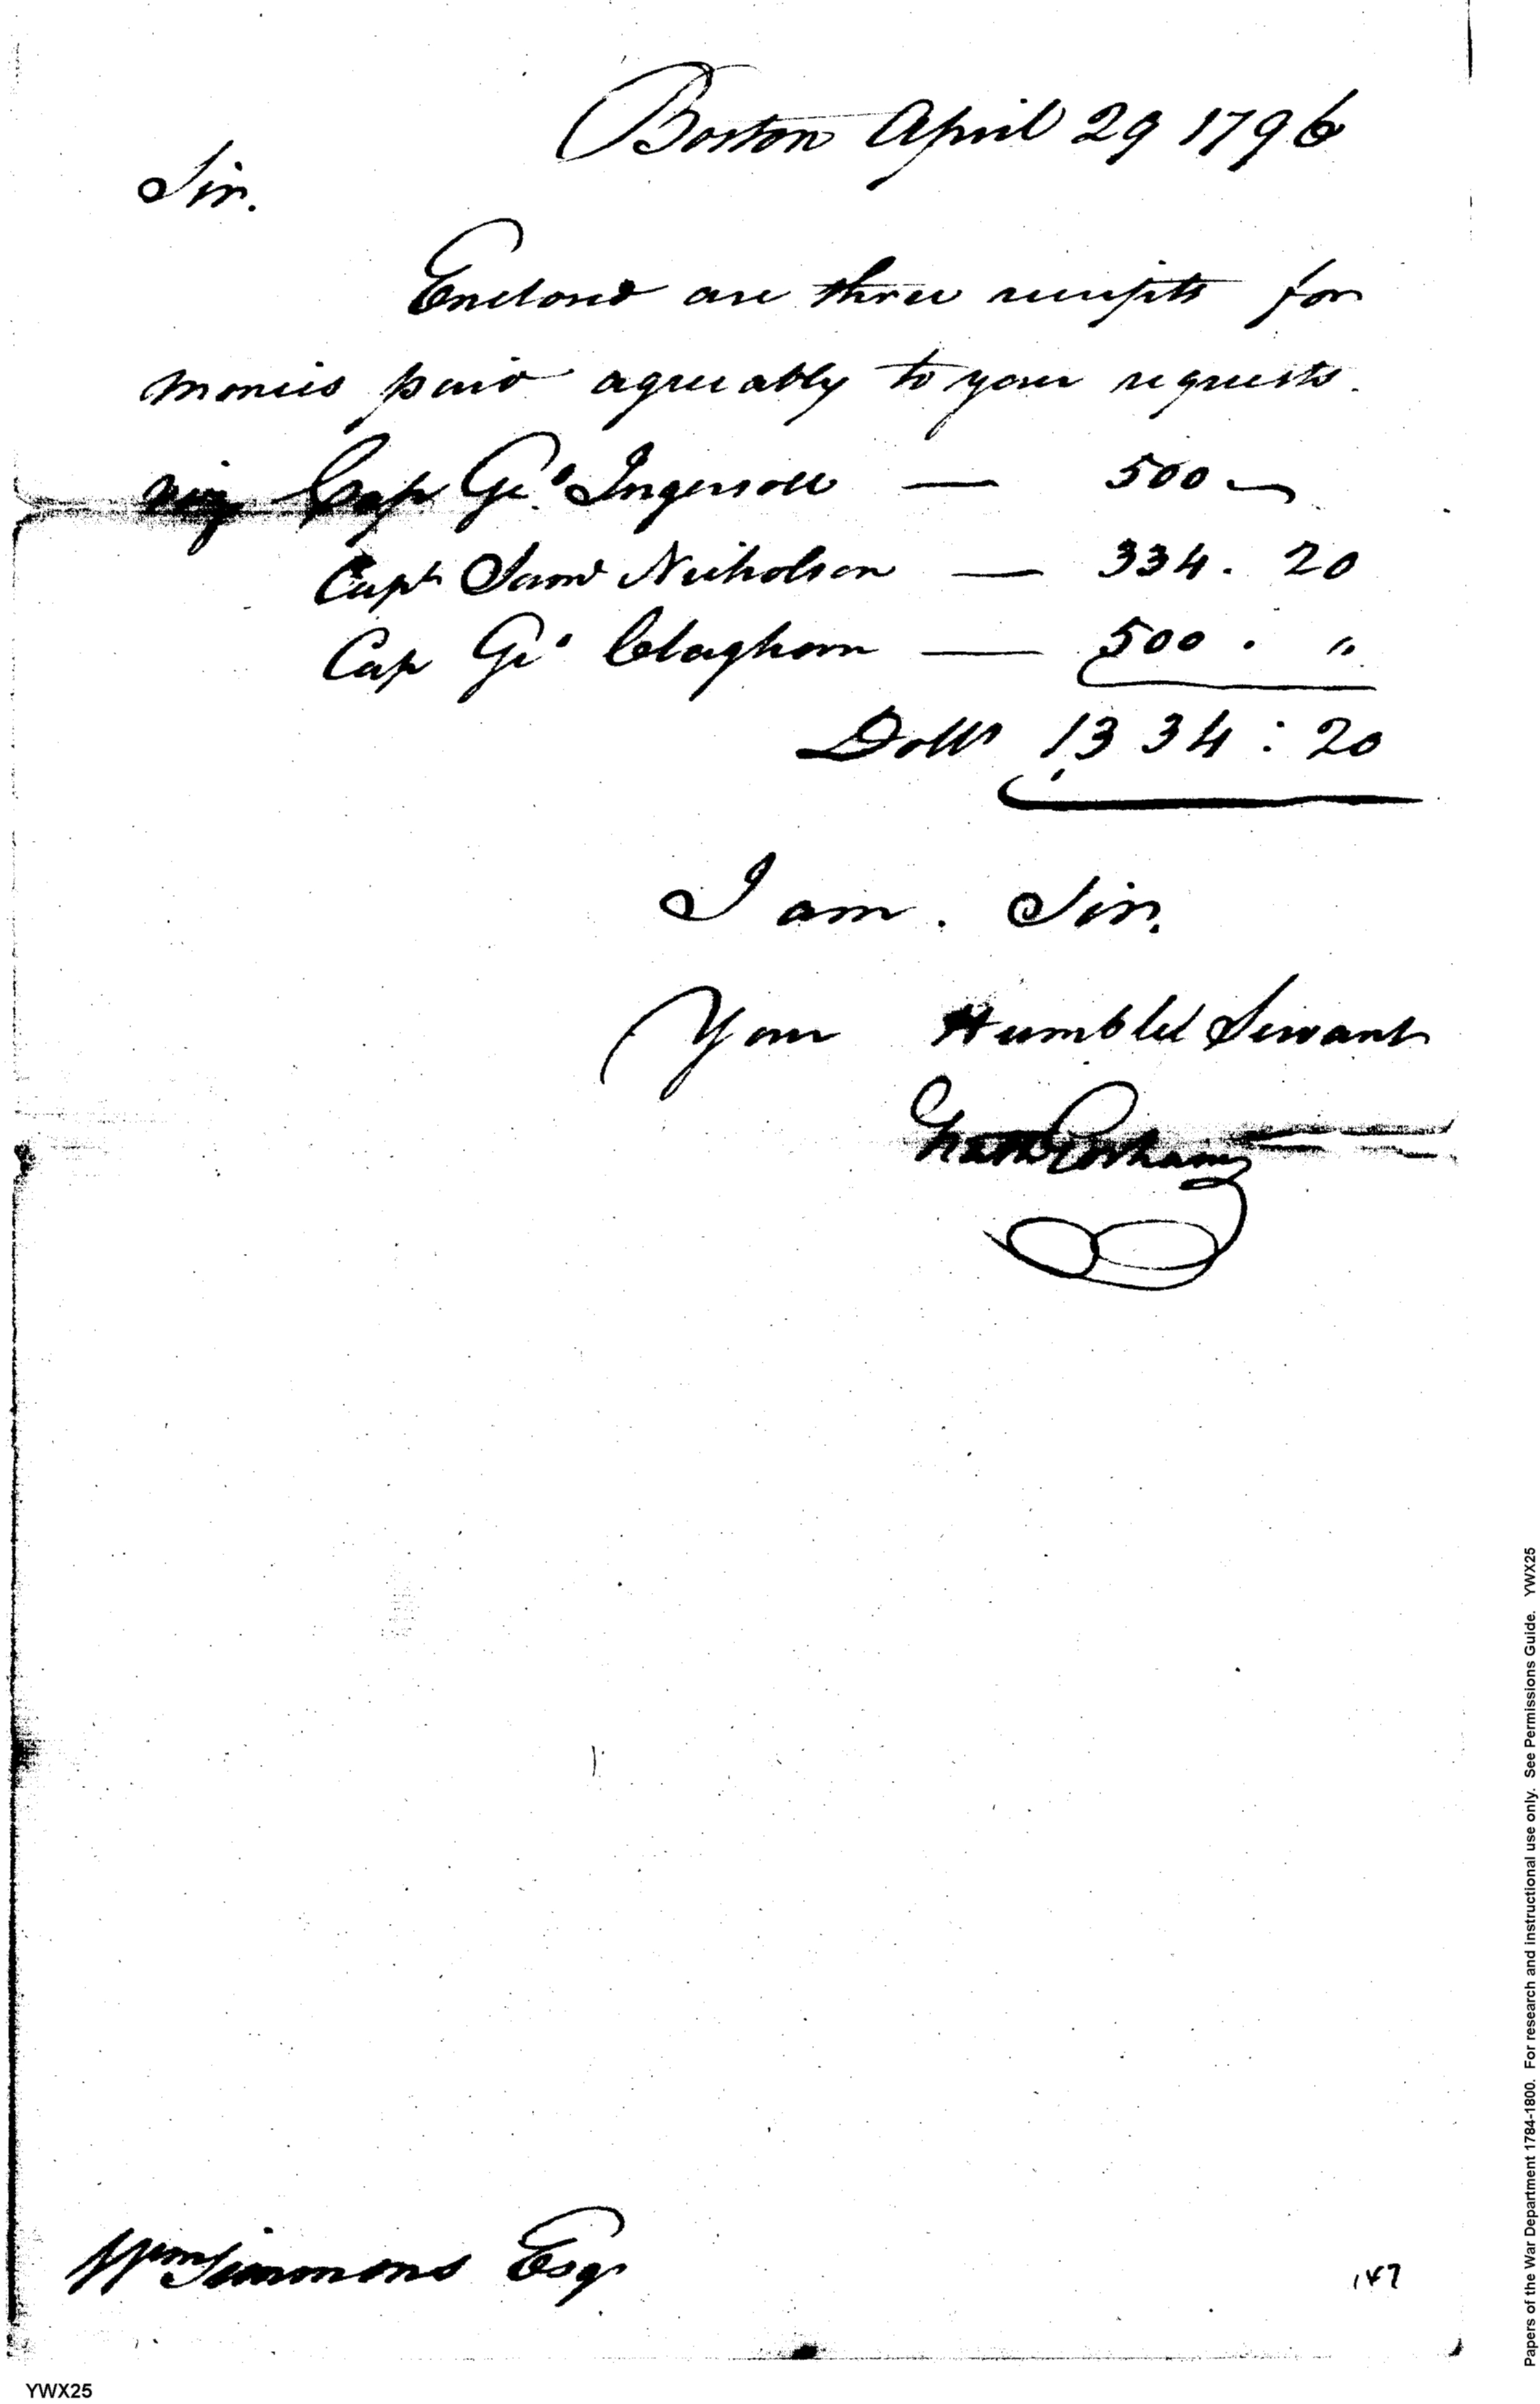 Boston April 29 1796
Sir.
Enclosed are three receipts for
monies paid agreeably to your requests.
viz Cap Geo Ingersoll — 500 —
Capt Saml Nicholson — 334. 20
Cap Geo Claghorn — 500 . "
Dolls 1334:20
I am. Sir.
Your Humble Servant
Nath Gorham
Wm Simmons Esqr
147
YWX25
Papers of the War Department 1784-1800. For research and instructional use only. See Permissions Guide. YWX25